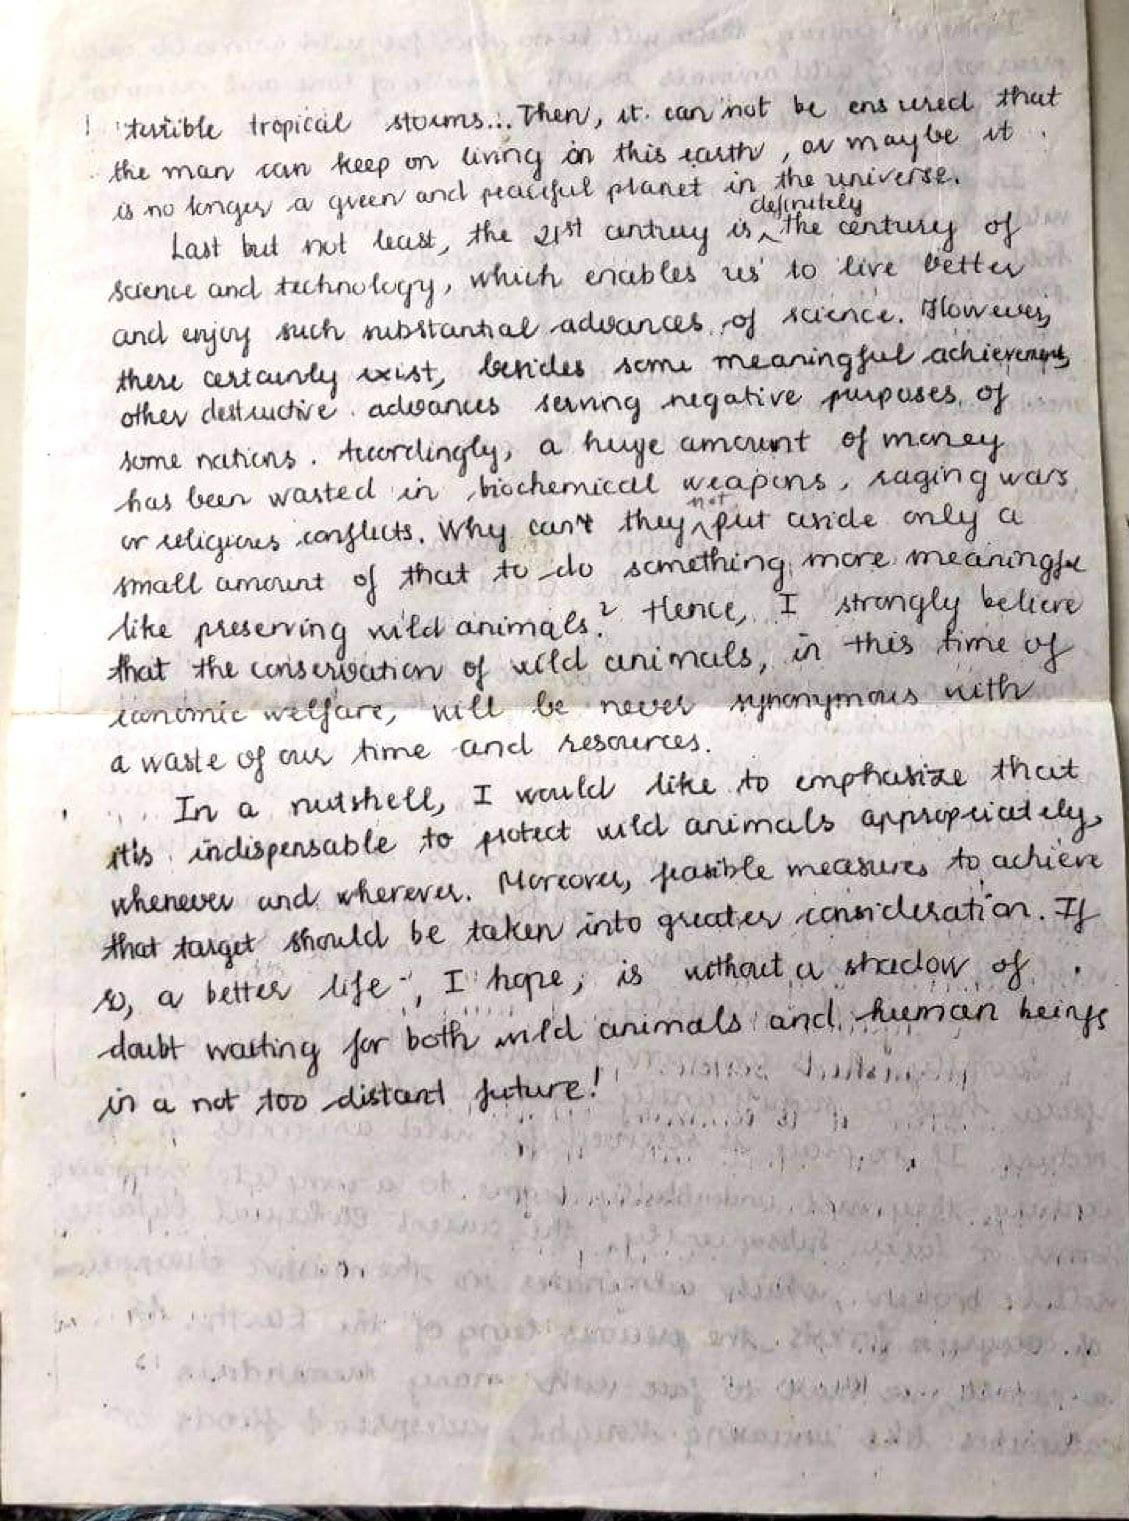 terrible tropical storms... Then, it can not be ensured that
the man can keep on living on this earth, or maybe it
is no longer a green and peaceful planet in the universe.
definitely
Last but not least, the 21st century is ^ the century of
science and technology, which enables us to live better
and enjoy such substantial advances of science. However,
there certainly exist, besides some meaningful achievements,
other destructive advances serving negative purposes of
some nations. Accordingly, a huge amount of money
has been wasted in biochemical weapons, raging wars
or religious conflicts. Why can't they ^not put aside only a
small amount of that to do something more meaningful
like preserving wild animals? Hence, I strongly believe
that the conservation of wild animals, in this time of
economic welfare, will be never synonymous with
a waste of our time and resources.
In a nutshell, I would like to emphasize that
it's indispensable to protect wild animals appropriately,
whenever and wherever. Moreover, feasible measures to achieve
that target should be taken into greater consideration. If
so, a better life, I hope, is without a shadow of
doubt waiting for both wild animals and human beings
in a not too distant future!